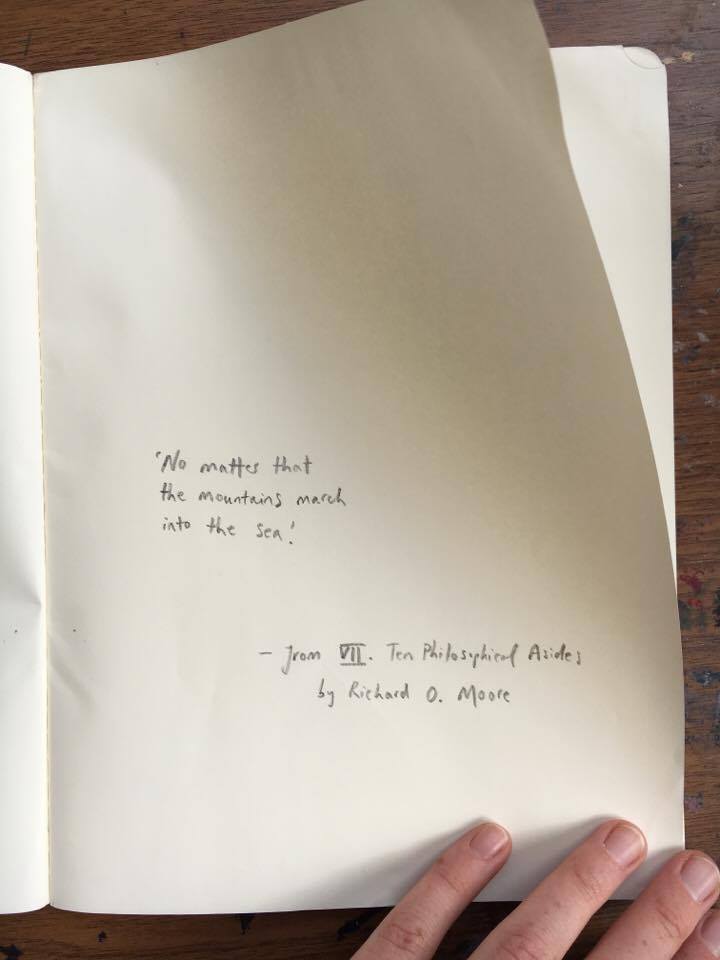 'No matter that
the mountains march
into the sea.'
– from VII. Ten Philosophical Asides
by Richard O. Moore